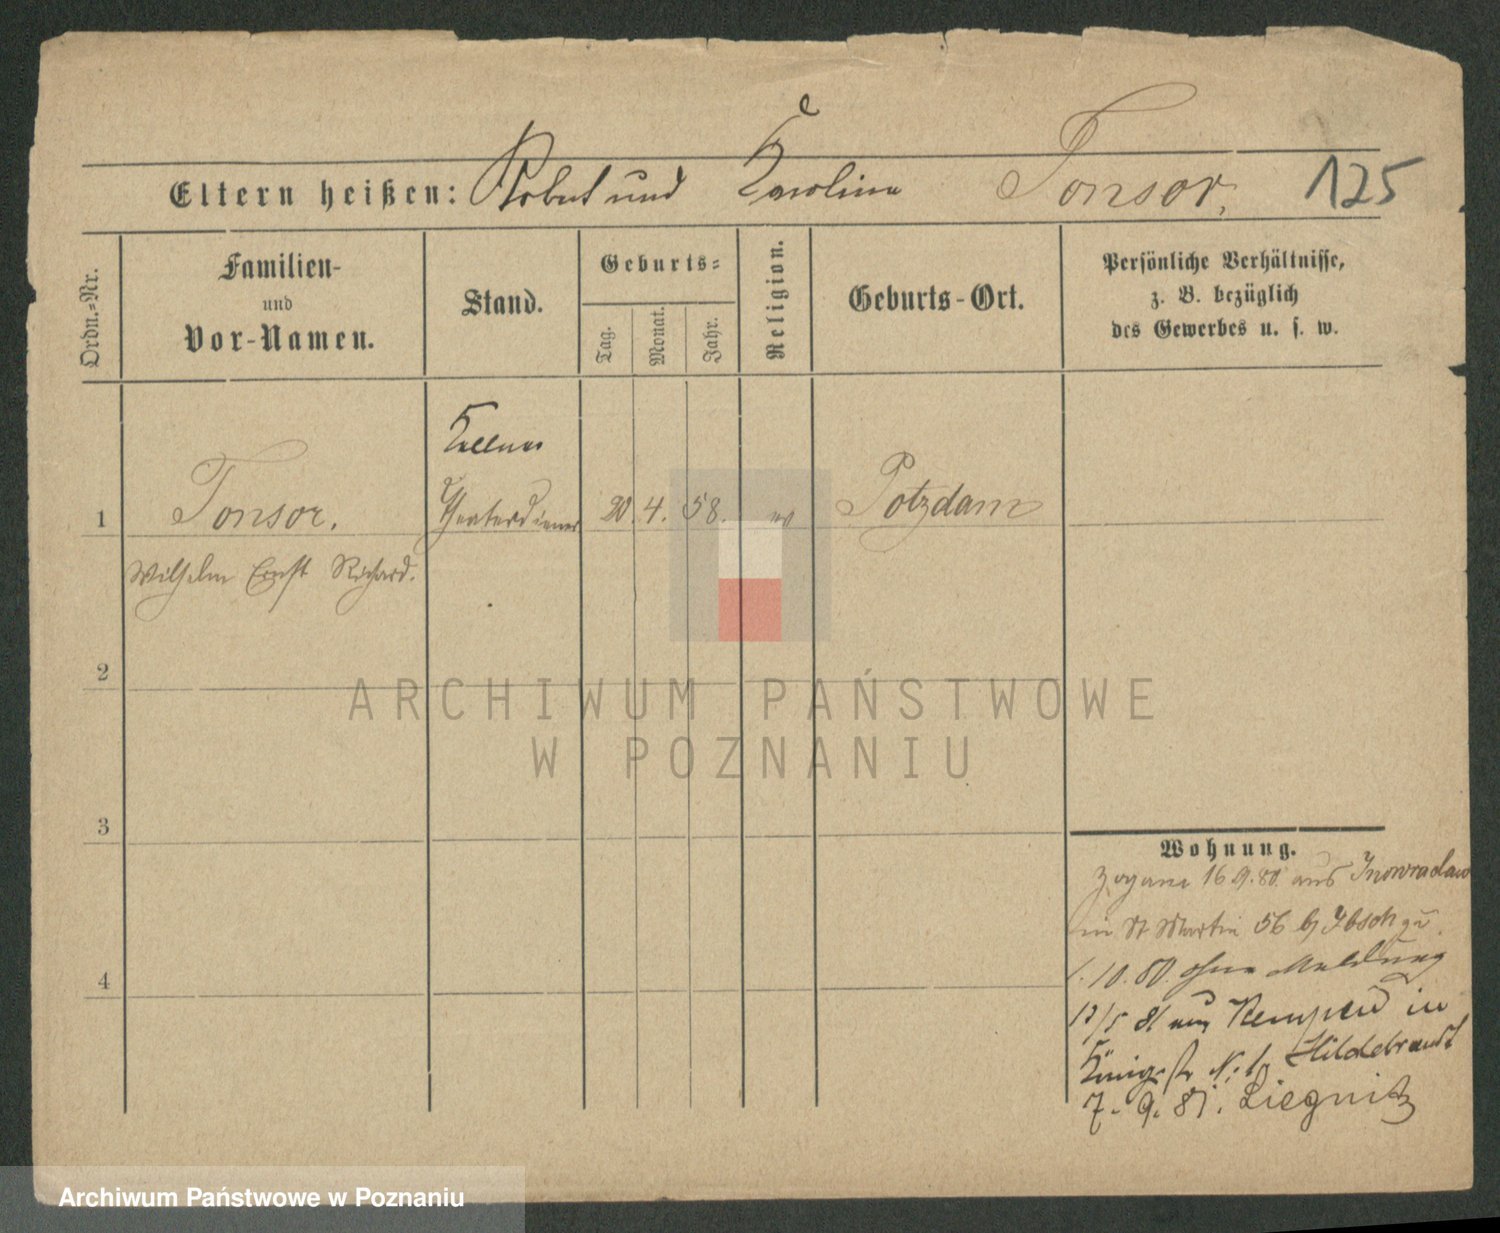 Eltern heißen: Robert und Karoline Tonsor.
125
Ordn.-Nr.
Familien-
und
Vor-Namen.
Stand.
Geburts-
Tag.
Monat.
Jahr.
Religion.
Geburts-Ort.
Persönliche Verhältnisse,
z. B. bezüglich
des Gewerbes u. s. w.
Kellner
1 Tonsor. Theaterdiener 20. 4. 58. ev Potzdam
Wilhelm Ernst Richard.
2
3
4
Wohnung.
Zogani 16 9. 80. aus Inowraclaw
in St Martin 56 b/
1. 10. 80. ohne Meldung
12/5 81 aus Kempen in
Königsstr N: 1. Hildebrandt
7. 9. 81. Liegnitz
ARCHIWUM PAŃSTWOWE
W POZNANIU
Archiwum Państwowe w Poznaniu